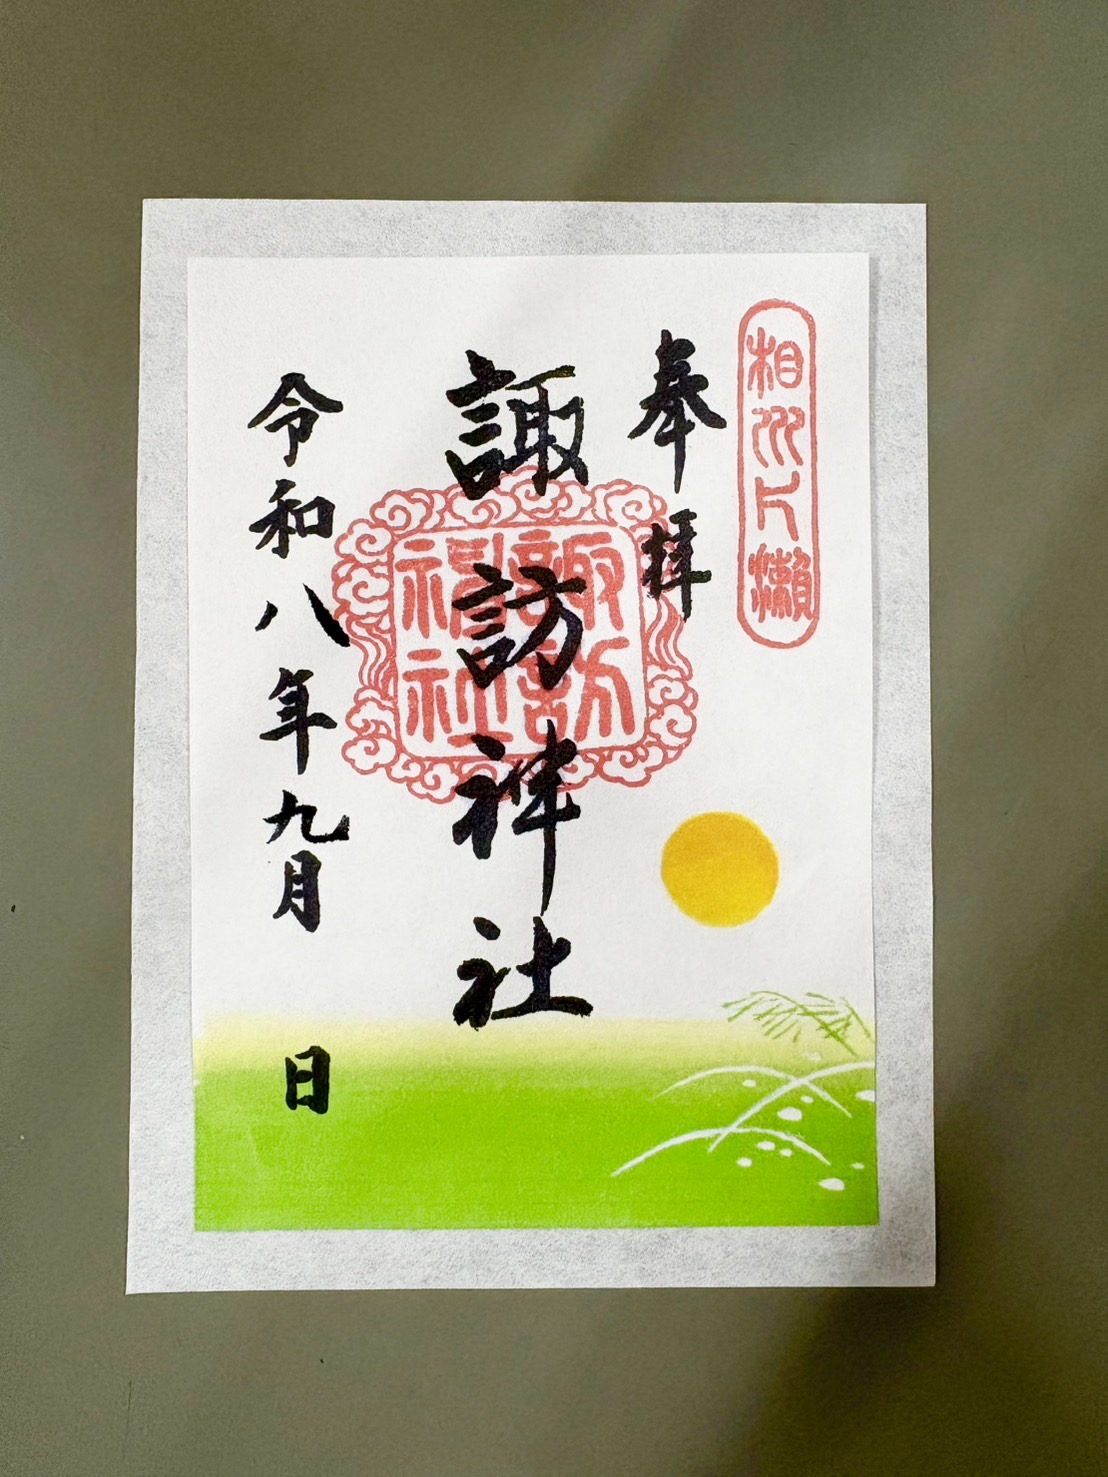 相州片瀬
奉拝
諏訪神社
諏訪
神社
令和八年九月　日